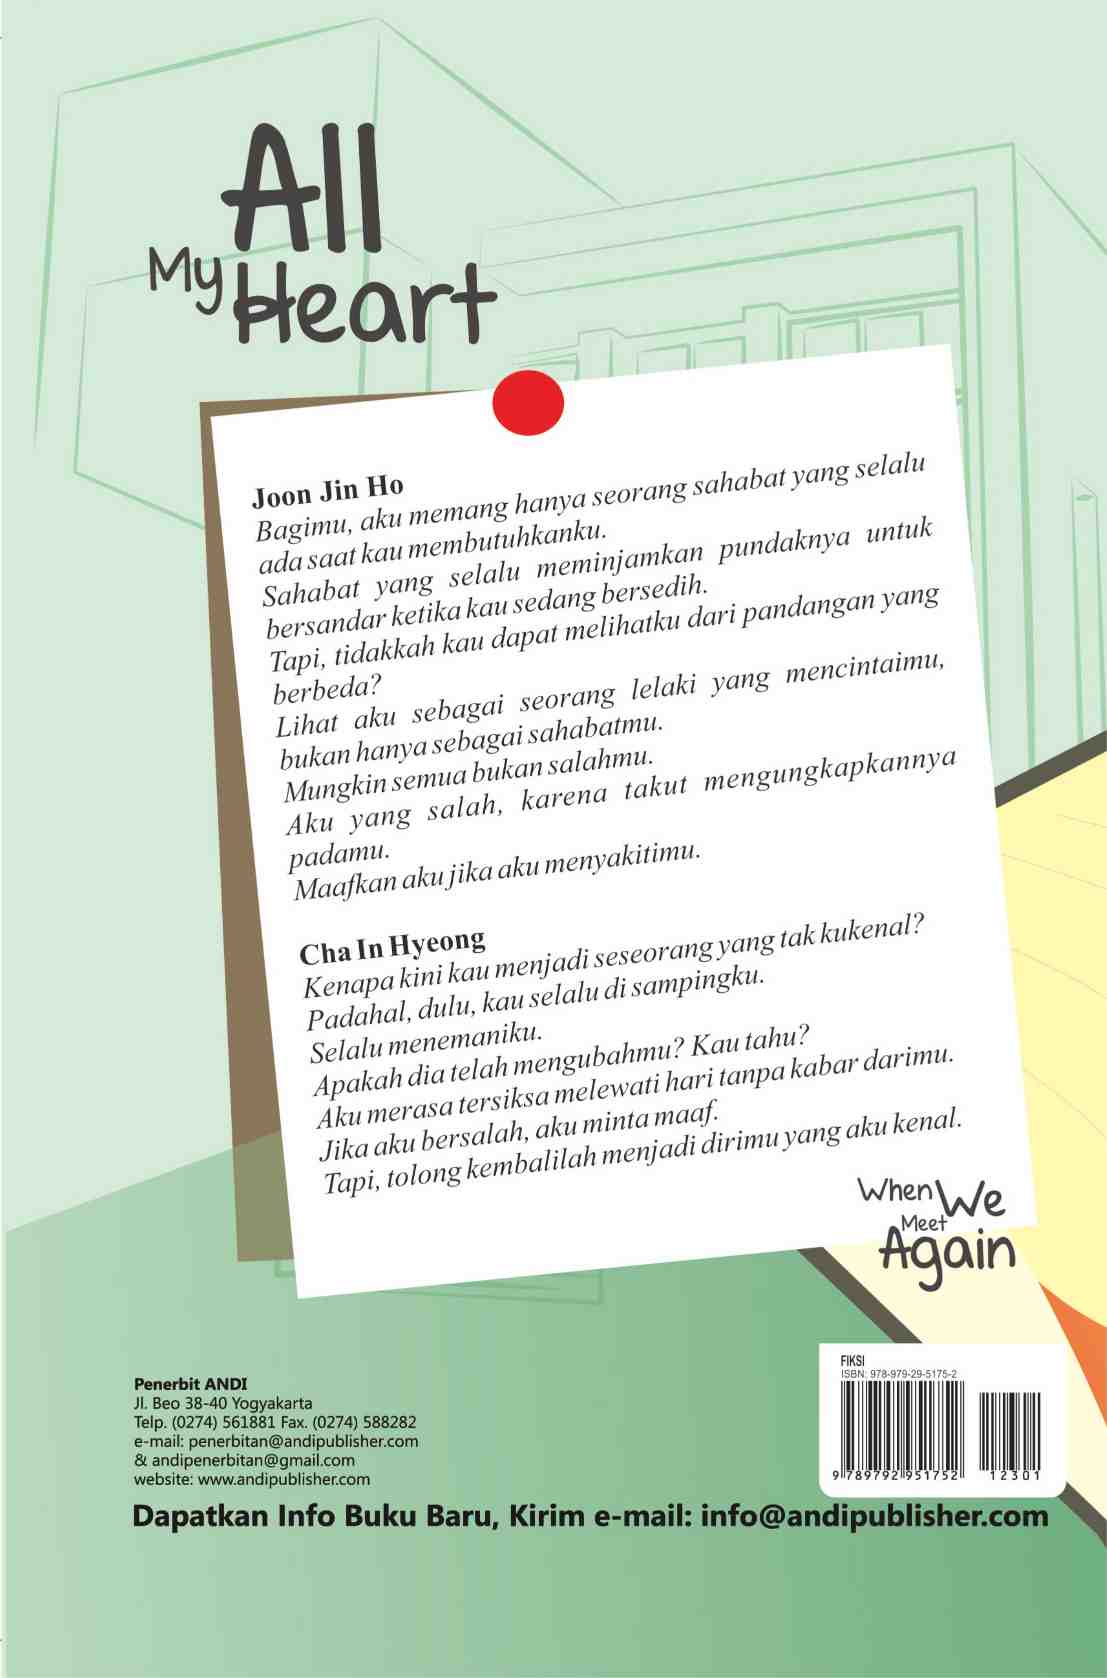 All
My Heart
Joon Jin Ho
Bagimu, aku memang hanya seorang sahabat yang selalu
ada saat kau membutuhkanku.
Sahabat yang selalu meminjamkan pundaknya untuk
bersandar ketika kau sedang bersedih.
Tapi, tidakkah kau dapat melihatku dari pandangan yang
berbeda?
Lihat aku sebagai seorang lelaki yang mencintaimu,
bukan hanya sebagai sahabatmu.
Mungkin semua bukan salahmu.
Aku yang salah, karena takut mengungkapkannya
padamu.
Maafkan aku jika aku menyakitimu.
Cha In Hyeong
Kenapa kini kau menjadi seseorang yang tak kukenal?
Padahal, dulu, kau selalu di sampingku.
Selalu menemaniku.
Apakah dia telah mengubahmu? Kau tahu?
Aku merasa tersiksa melewati hari tanpa kabar darimu.
Jika aku bersalah, aku minta maaf.
Tapi, tolong kembalilah menjadi dirimu yang aku kenal.
When We
Meet
Again
FIKSI
ISBN: 978-979-29-5175-2
9 789792 951752
12301
Penerbit ANDI
Jl. Beo 38-40 Yogyakarta
Telp. (0274) 561881 Fax. (0274) 588282
e-mail: penerbitan@andipublisher.com
& andipenerbitan@gmail.com
website: www.andipublisher.com
Dapatkan Info Buku Baru, Kirim e-mail: info@andipublisher.com